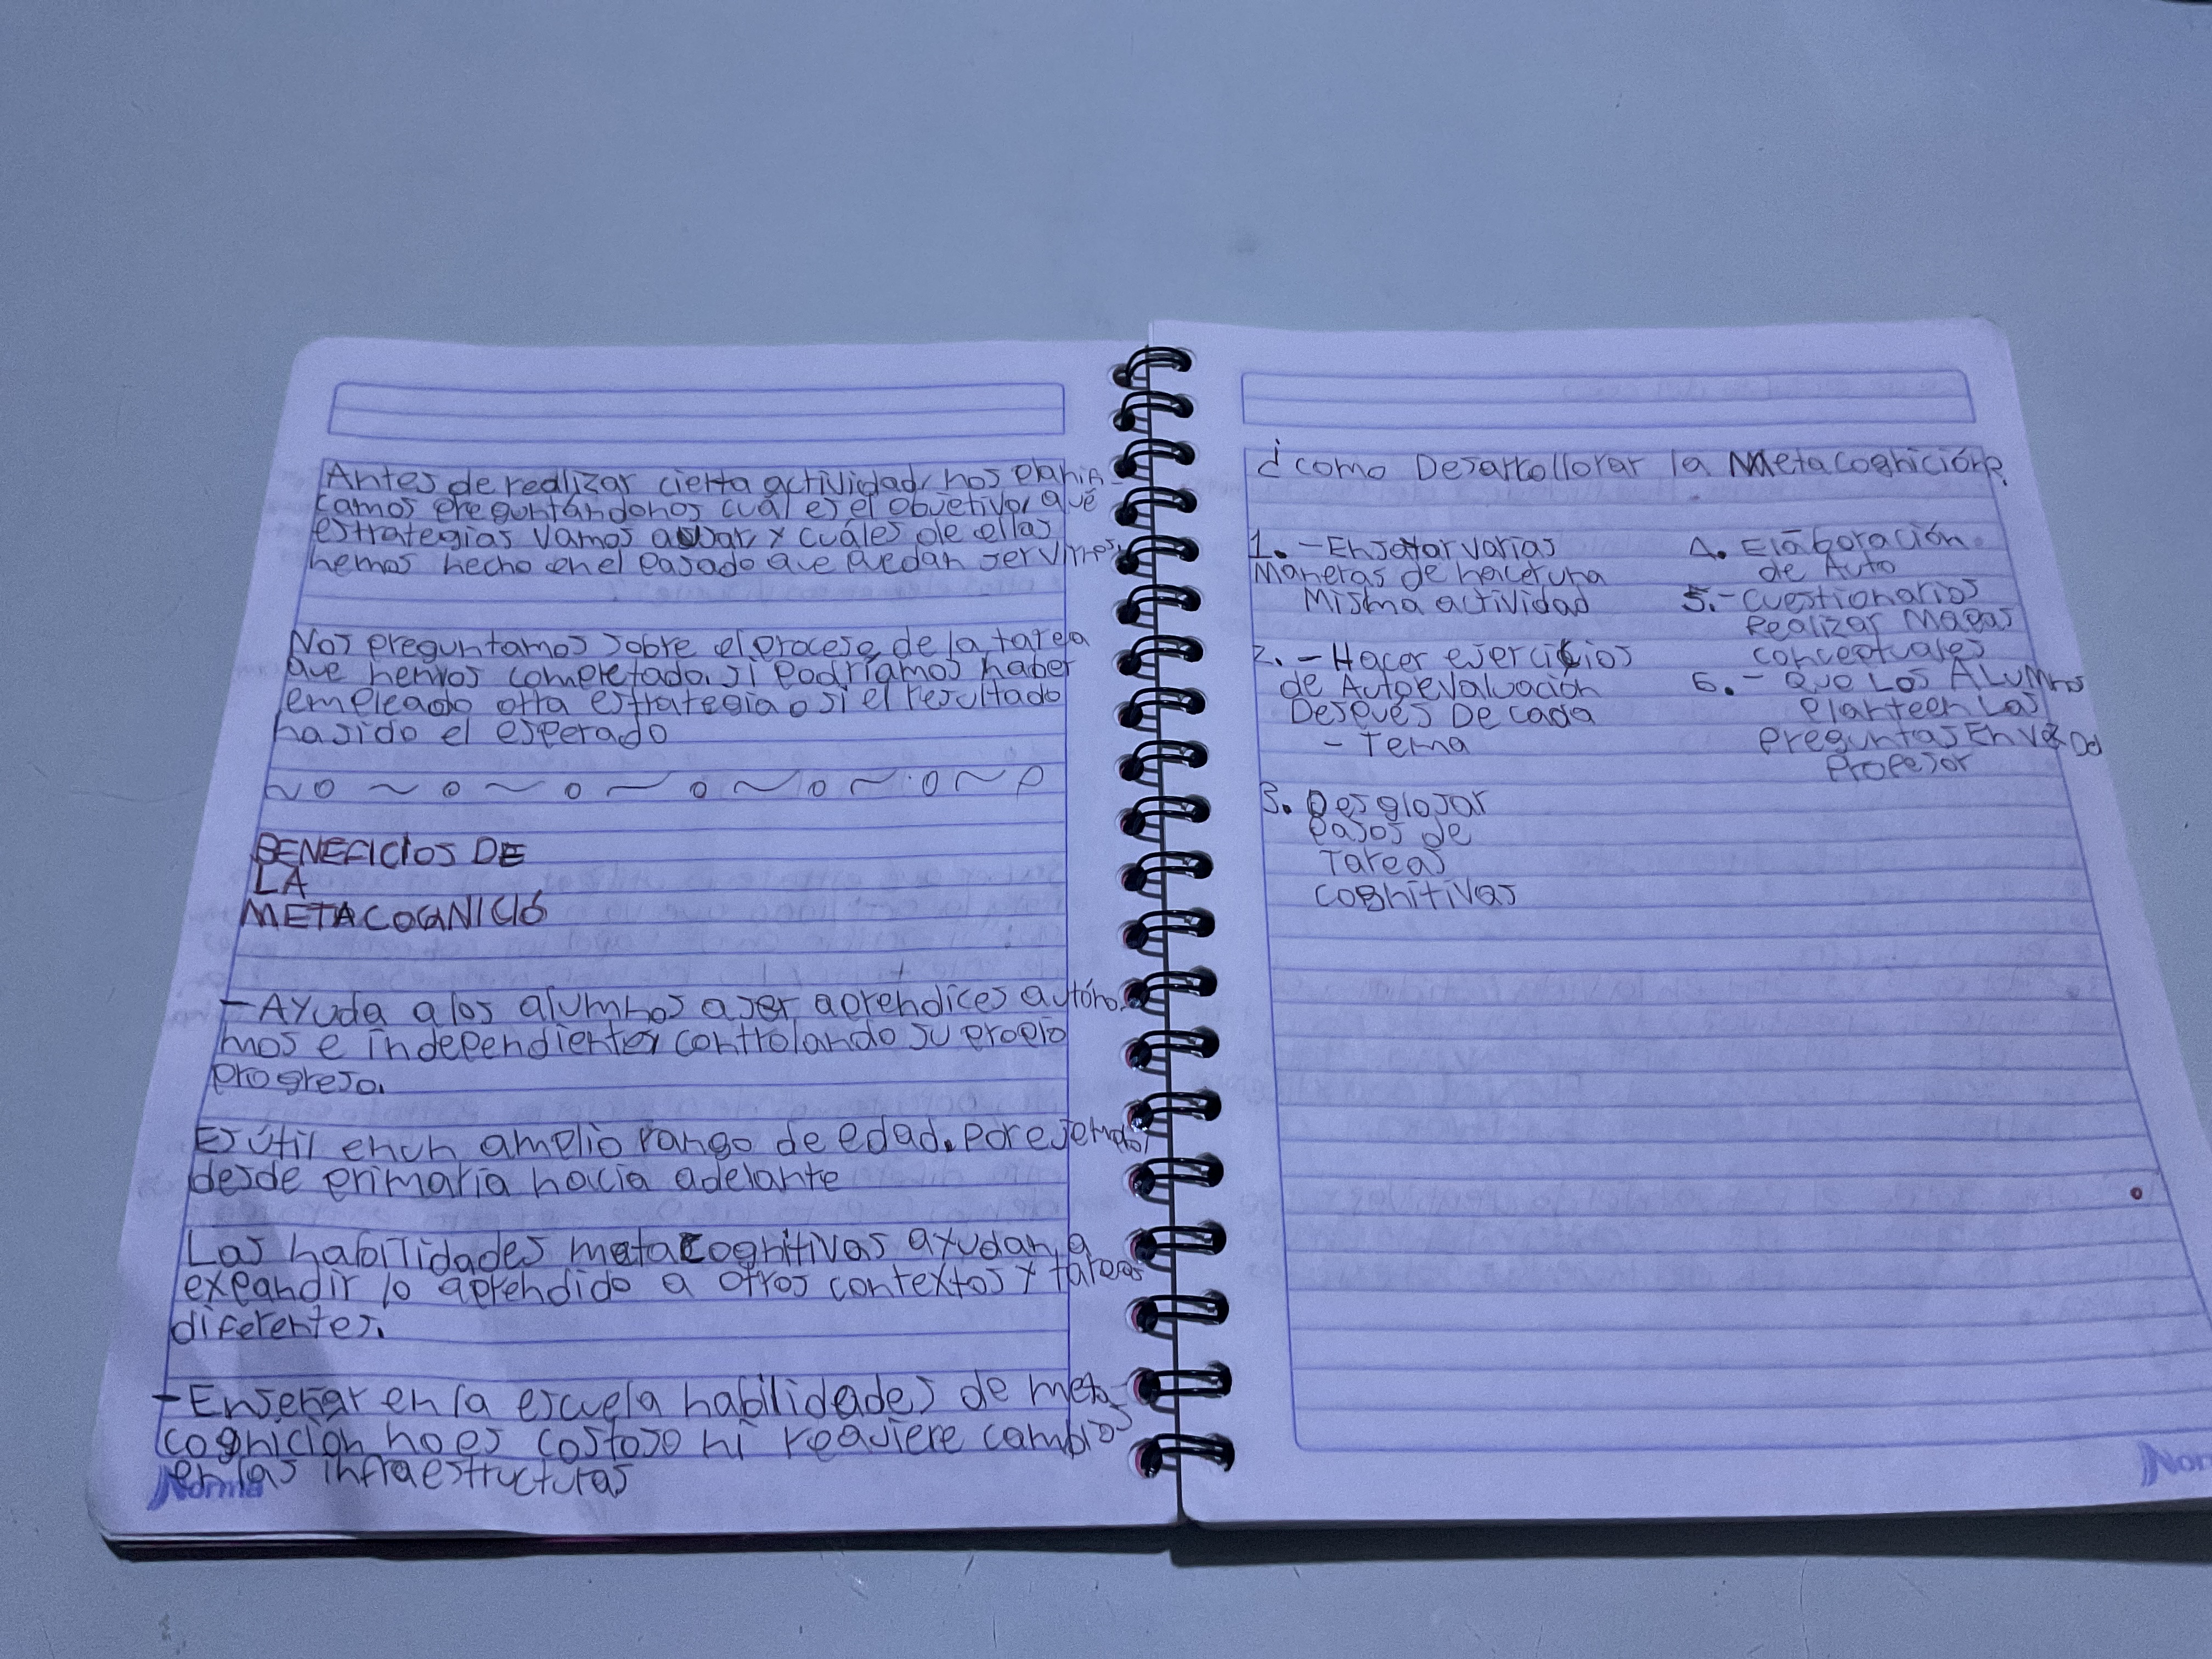 Antes de realizar cierta actividad, nos planifi-
camos preguntándonos cuál es el objetivo, qué
estrategias vamos a usar y cuáles de ellas
hemos hecho en el pasado que puedan servirnos.
Nos preguntamos sobre el proceso de la tarea
que hemos completado, si podríamos haber
empleado otra estrategia o si el resultado
ha sido el esperado
BENEFICIOS DE
LA
METACOGNICIÓ
- Ayuda a los alumnos a ser aprendices autóno-
mos e independientes controlando su propio
progreso.
Es útil en un amplio rango de edad. Por ejemplo,
desde primaria hacia adelante
Las habilidades metacognitivas ayudan a
expandir lo aprendido a otros contextos y tareas
diferentes.
- Enseñar en la escuela habilidades de meta-
cognición no es costoso ni requiere cambios
en las infraestructuras
Norma
¿como Desarrollorar la Metacognición?
1. - Ensayar varias
Maneras de hacer una
Misma actividad
2. - Hacer ejercicios
de Autoevaluación
Después De cada
- Tema
3. Desglosar
pasos de
Tareas
cognitivas
4. Elaboración
de Auto
5. - cuestionarios
Realizar Mapas
conceptuales
6. - Que Los ALumnos
Planteen Las
preguntas En vez Del
Profesor
Nor